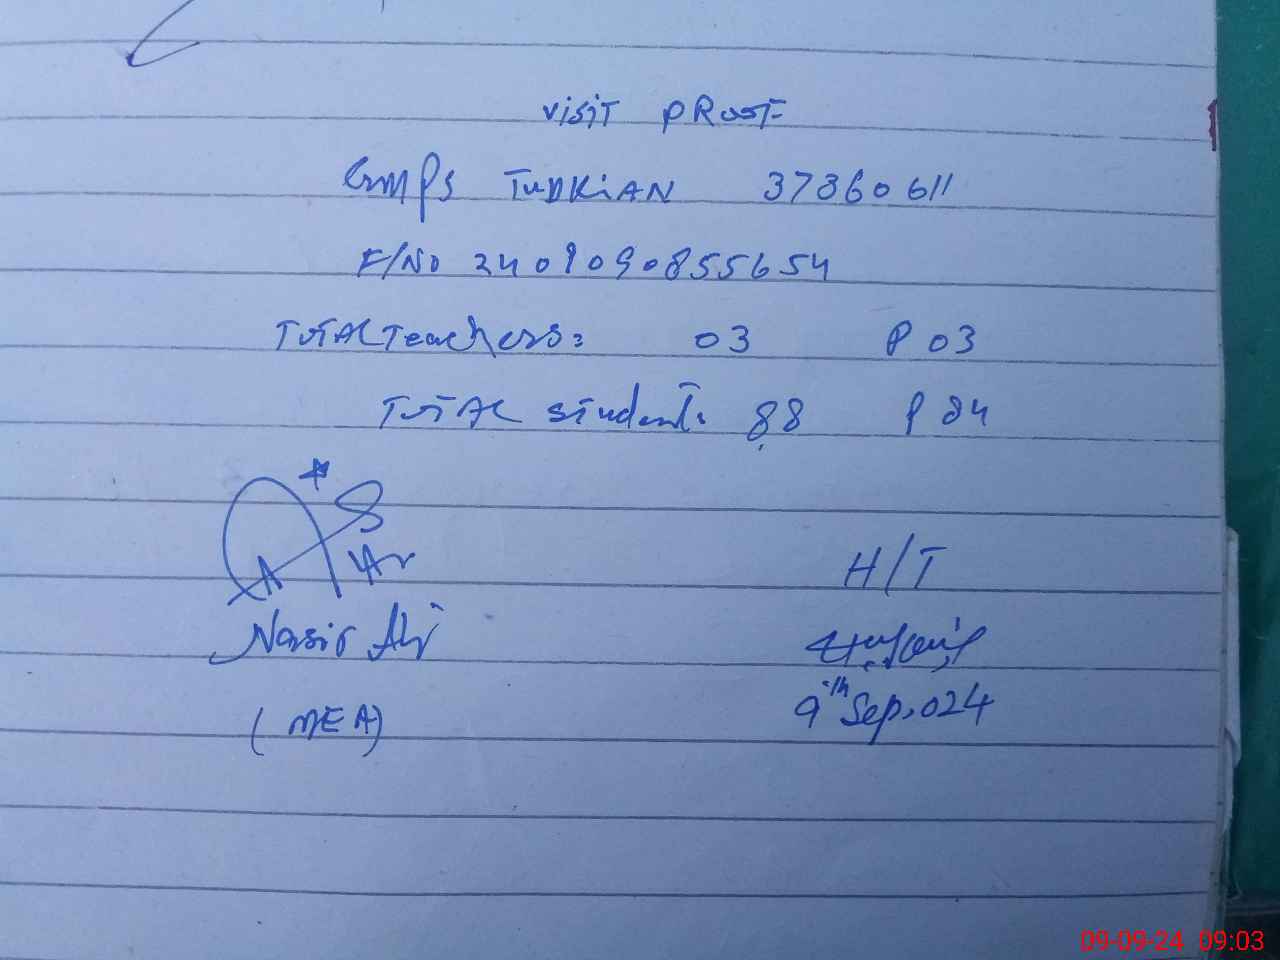 visit PRoof
GMPS TUDKiAN 37360611
F/No 2409090855654
TOTAL Teachers: 03 P 03
TOTAL students 88 P 84
H/T
Nasir Ali
9th Sep, 024
(MEA)
09-09-24 09:03